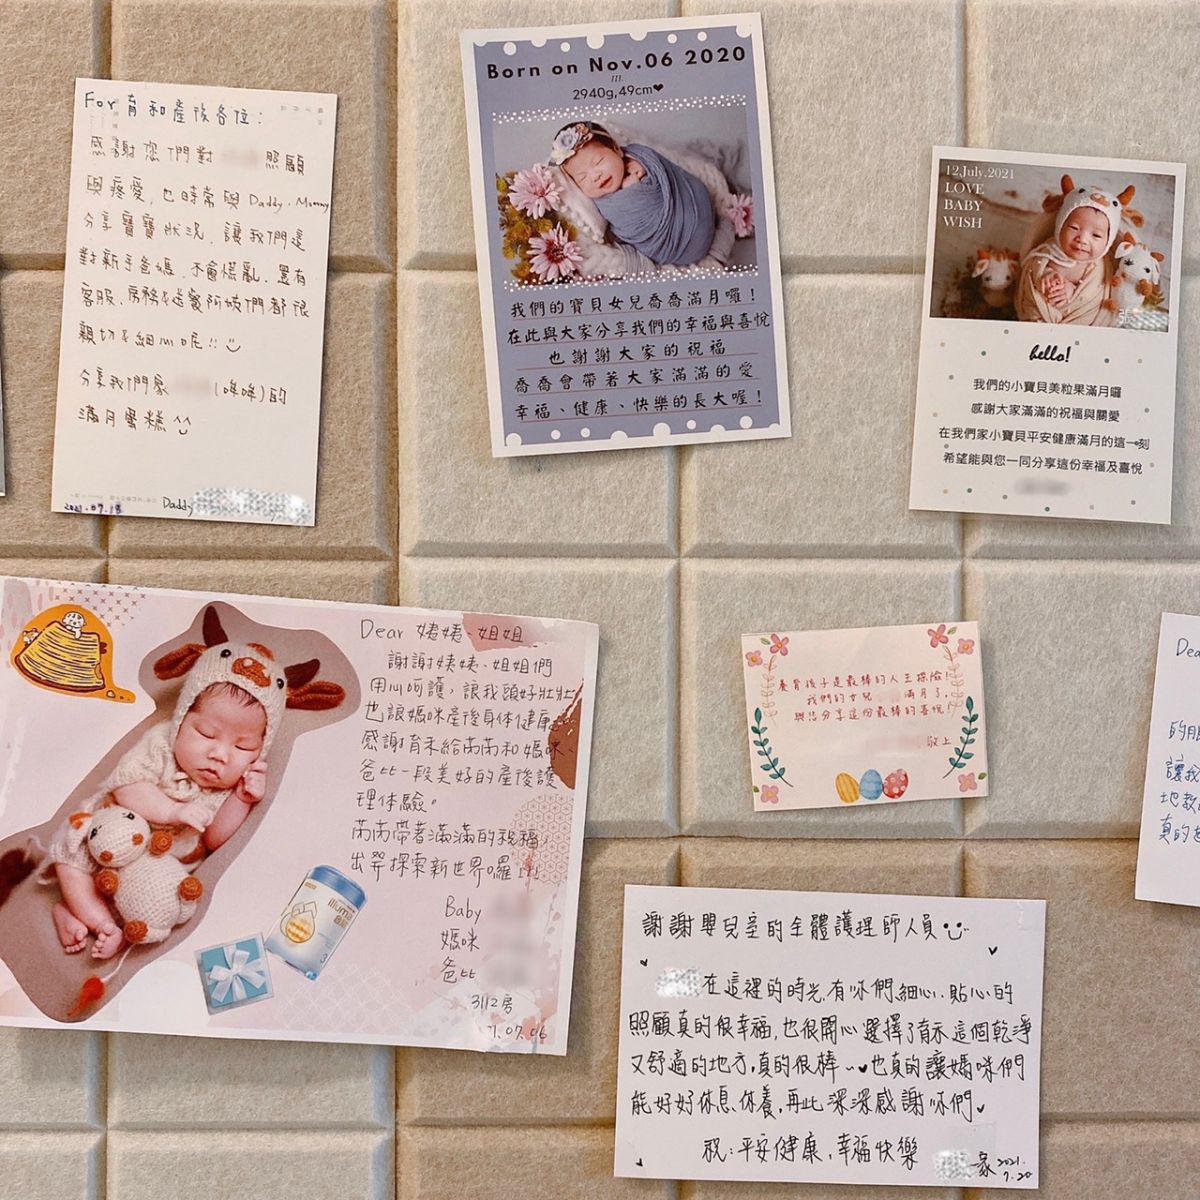 For 育和產後各位：
感謝您們對 照顧
與疼愛，也時常與Daddy、Mommy
分享寶寶狀況，讓我們這
對新手爸媽，不會慌亂，還有
客服、房務&送餐阿姨們都很
親切&細心呢!!
分享我們家 (哞哞)的
滿月蛋糕
2021.07.18 Daddy
Born on Nov.06 2020
2940g,49cm❤
我們的寶貝女兒喬喬滿月囉！
在此與大家分享我們的幸福與喜悅
也謝謝大家的祝福
喬喬會帶著大家滿滿的愛
幸福、健康、快樂的長大喔！
12.July.2021
LOVE
BABY
WISH
張
hello!
我們的小寶貝美粒果滿月囉
感謝大家滿滿的祝福與關愛
在我們家小寶貝平安健康滿月的這一刻
希望能與您一同分享這份幸福及喜悅
Dear 姨姨、姐姐
謝謝姨姨、姐姐們
用心呵護，讓我頭好壯壯
也讓媽咪產後身體健康
感謝育禾給芮芮和媽咪、
爸比一段美好的產後護
理体驗。
芮芮帶著滿滿的祝福
出發探索新世界囉!!!
Baby
媽咪
爸比
3112房
1.07.06
illuma
3
養育孩子是最棒的人生探險！
我們的女兒 滿月了，
與您分享這份最棒的喜悅！
敬上
Dea
的服
讓我
地教
真的
謝謝嬰兒室的全體護理師人員
在這裡的時光，有你們細心、貼心的
照顧真的很幸福，也很開心選擇了育禾這個乾淨
又舒適的地方，真的很棒~~♥也真的讓媽咪們
能好好休息休養，再此深深感謝你們♥
祝：平安健康，幸福快樂
家 2021.
7.20